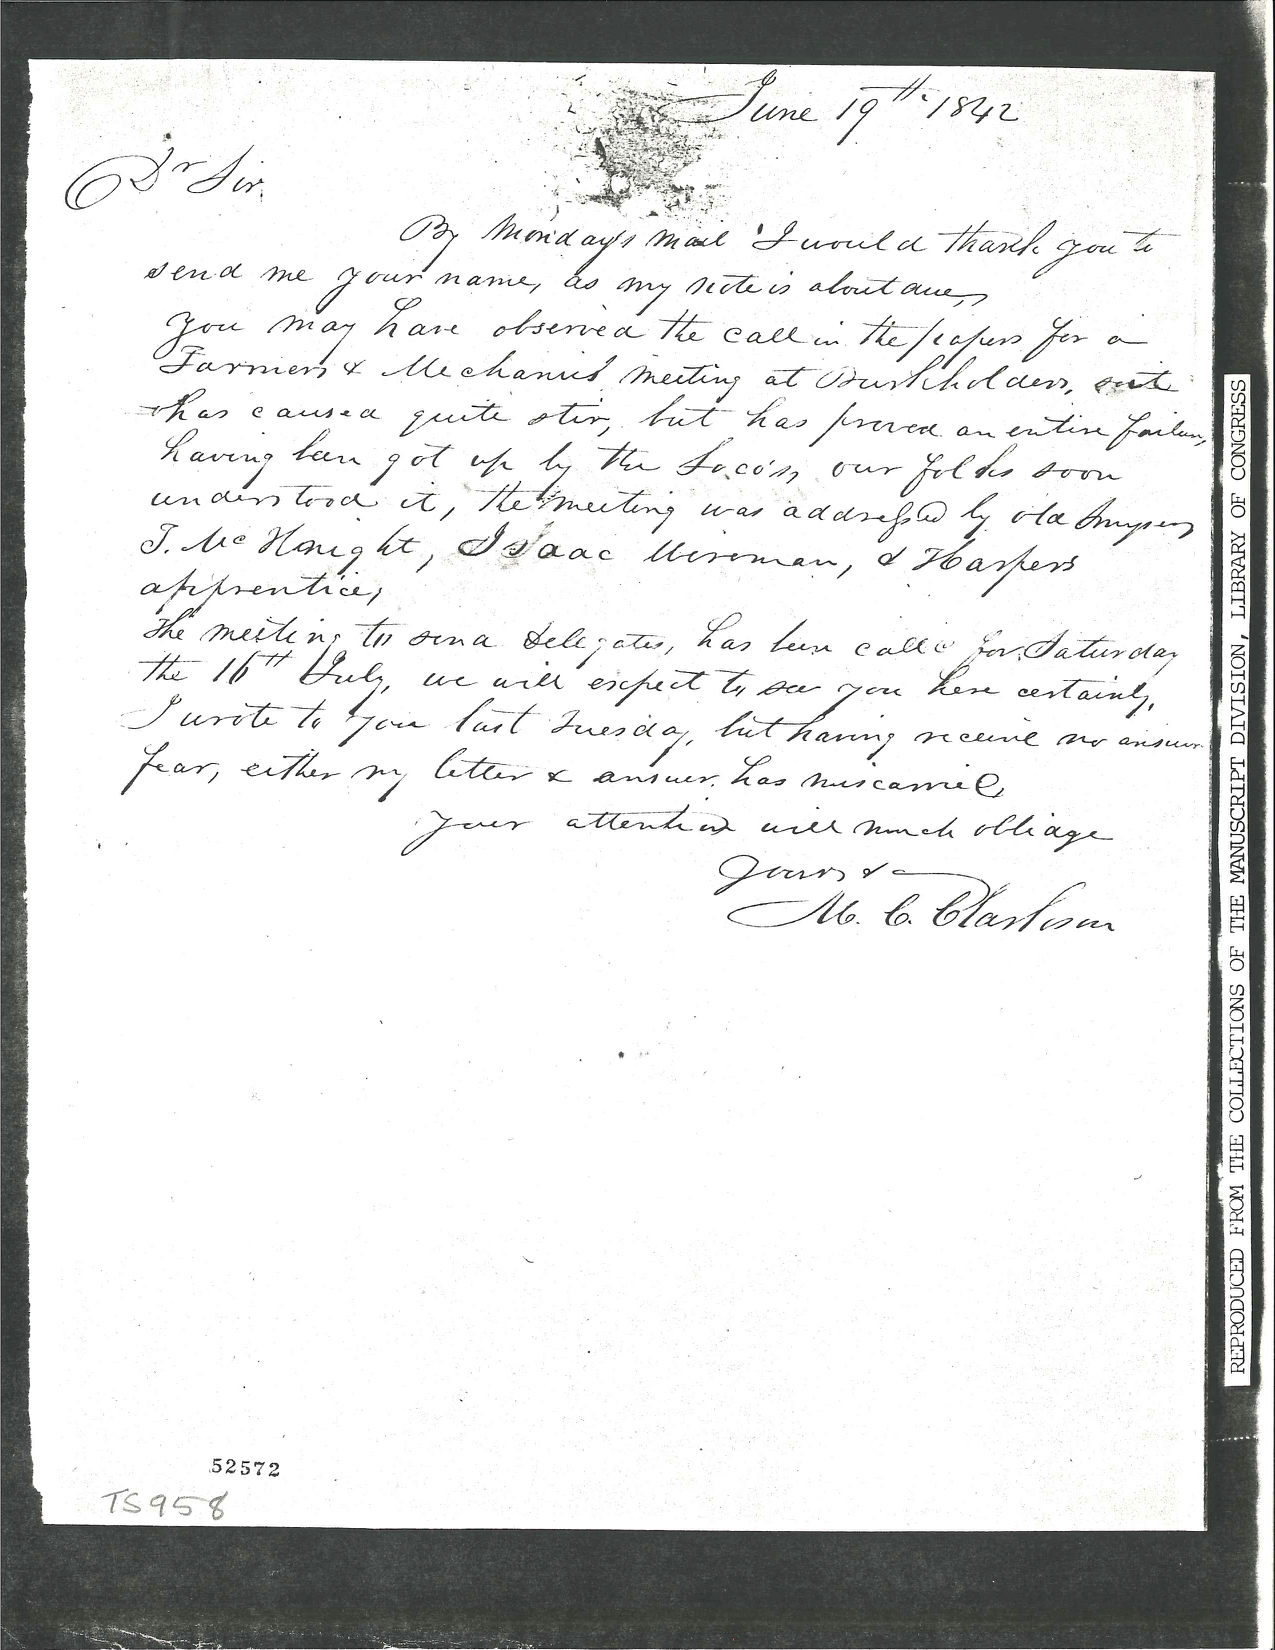 June 19th 1842
Dr Sir.
By Monday's mail I would thank you to
send me your name, as my note is about due,
You may have observed the call in the papers for a
Farmers & Mechanics meeting at Burkholders,
has caused quite stir, but has proved an entire failure,
having been got up by the Loco's, our folks soon
understood it, the meeting was addressed by old
T. McKnight, Isaac Wireman, & Harpers
apprentice,
The meeting to send Delegates, has been calld for Saturday
the 16th July, we will expect to see you here certainly,
I wrote to you last Tuesday, but having receivd no answer
fear, either my letter & answer has miscarried,
your attention will much obliage
Yours &c
M. C. Clarkson
52572
TS958
REPRODUCED FROM THE COLLECTIONS OF THE MANUSCRIPT DIVISION, LIBRARY OF CONGRESS